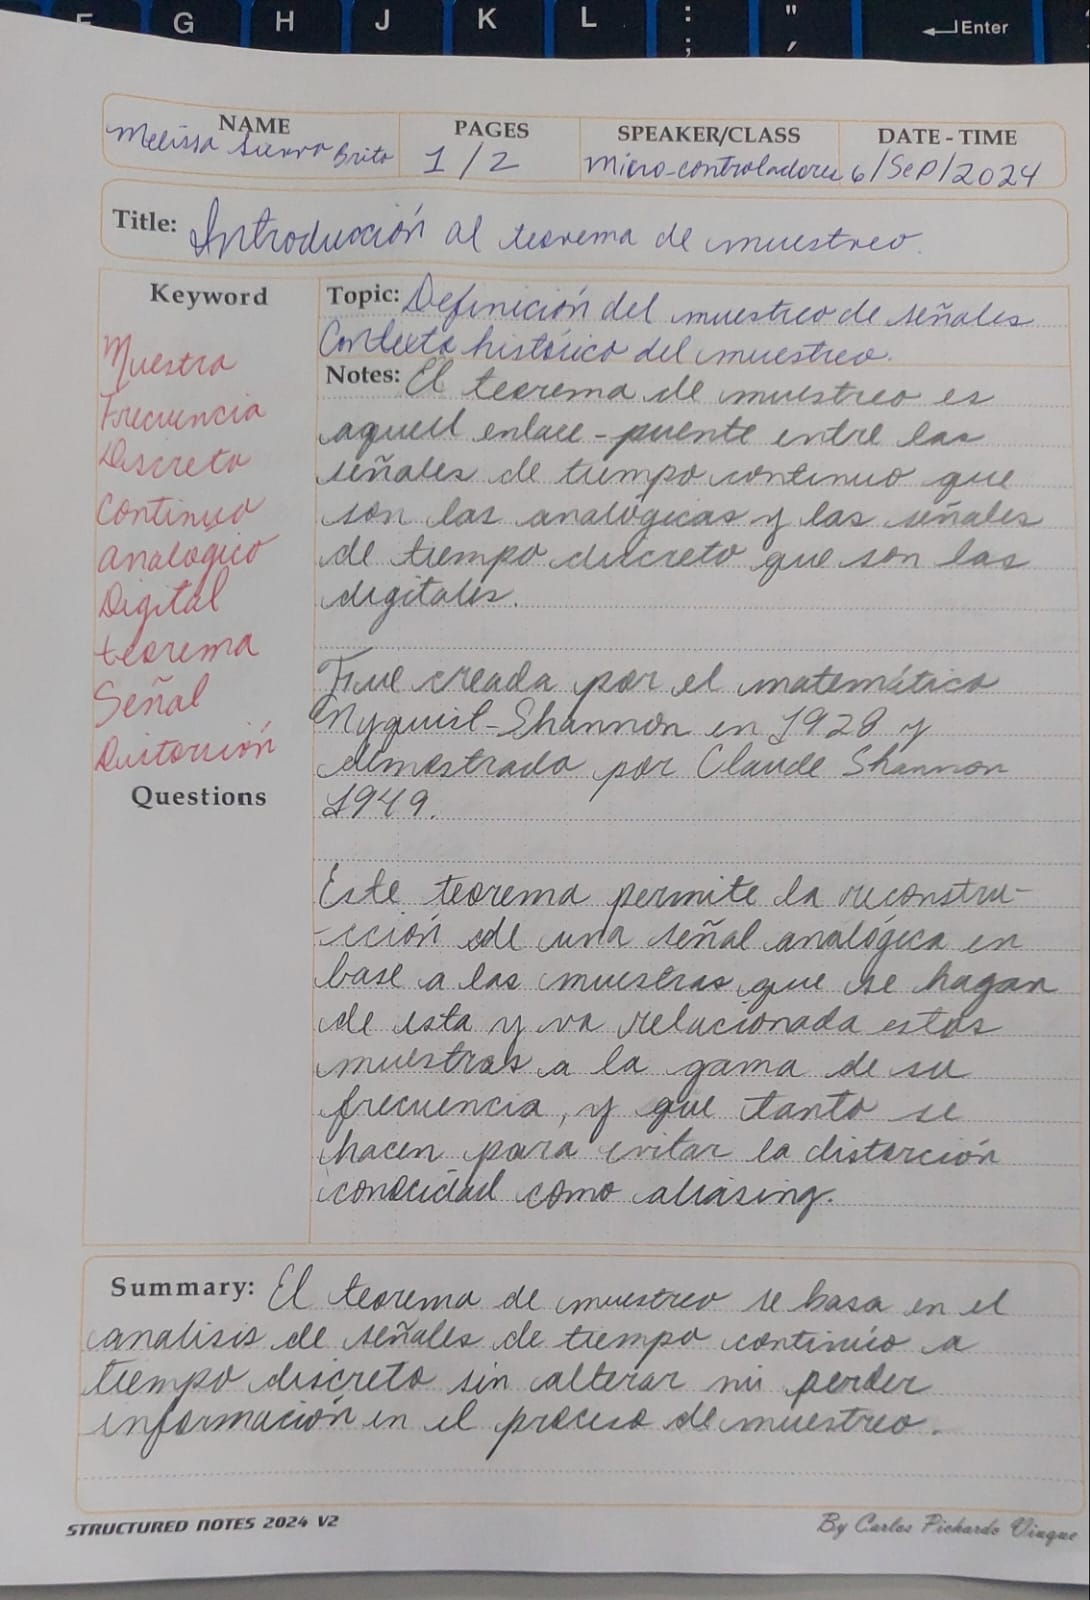 G H J K L : ; " ' Enter
NAME PAGES SPEAKER/CLASS DATE - TIME
Melissa Sierra Brito 1/2 Micro-controladores 6/Sep/2024
Title: Introducción al teorema de muestreo.
Keyword
Muestra
Frecuencia
Discreto
Continuo
analogico
Digital
teorema
Señal
Distorsión
Questions
Topic: Definición del muestreo de señales
Contexto histórico del muestreo.
Notes: El teorema de muestreo es
aquell enlace-puente entre las
señales de tiempo continuo que
son las analógicas y las señales
de tiempo discreto que son las
digitales.
Fue creada por el matemático
Nyquist-Shannon en 1928 y
demostrado por Claude Shannon
1949.
Este teorema permite la reconstru-
-cción de una señal analógica en
base a las muestras que se hagan
de esta y va relacionada estas
muestras a la gama de su
frecuencia, y que tanto se
hacen para evitar la distorción
conocidad como aliasing.
Summary: El teorema de muestreo se basa en el
analisis de señales de tiempo continuo a
tiempo discreto sin alterar ni perder
información en el proceso de muestreo.
STRUCTURED NOTES 2024 V2
By Carlos Pichardo Viuque